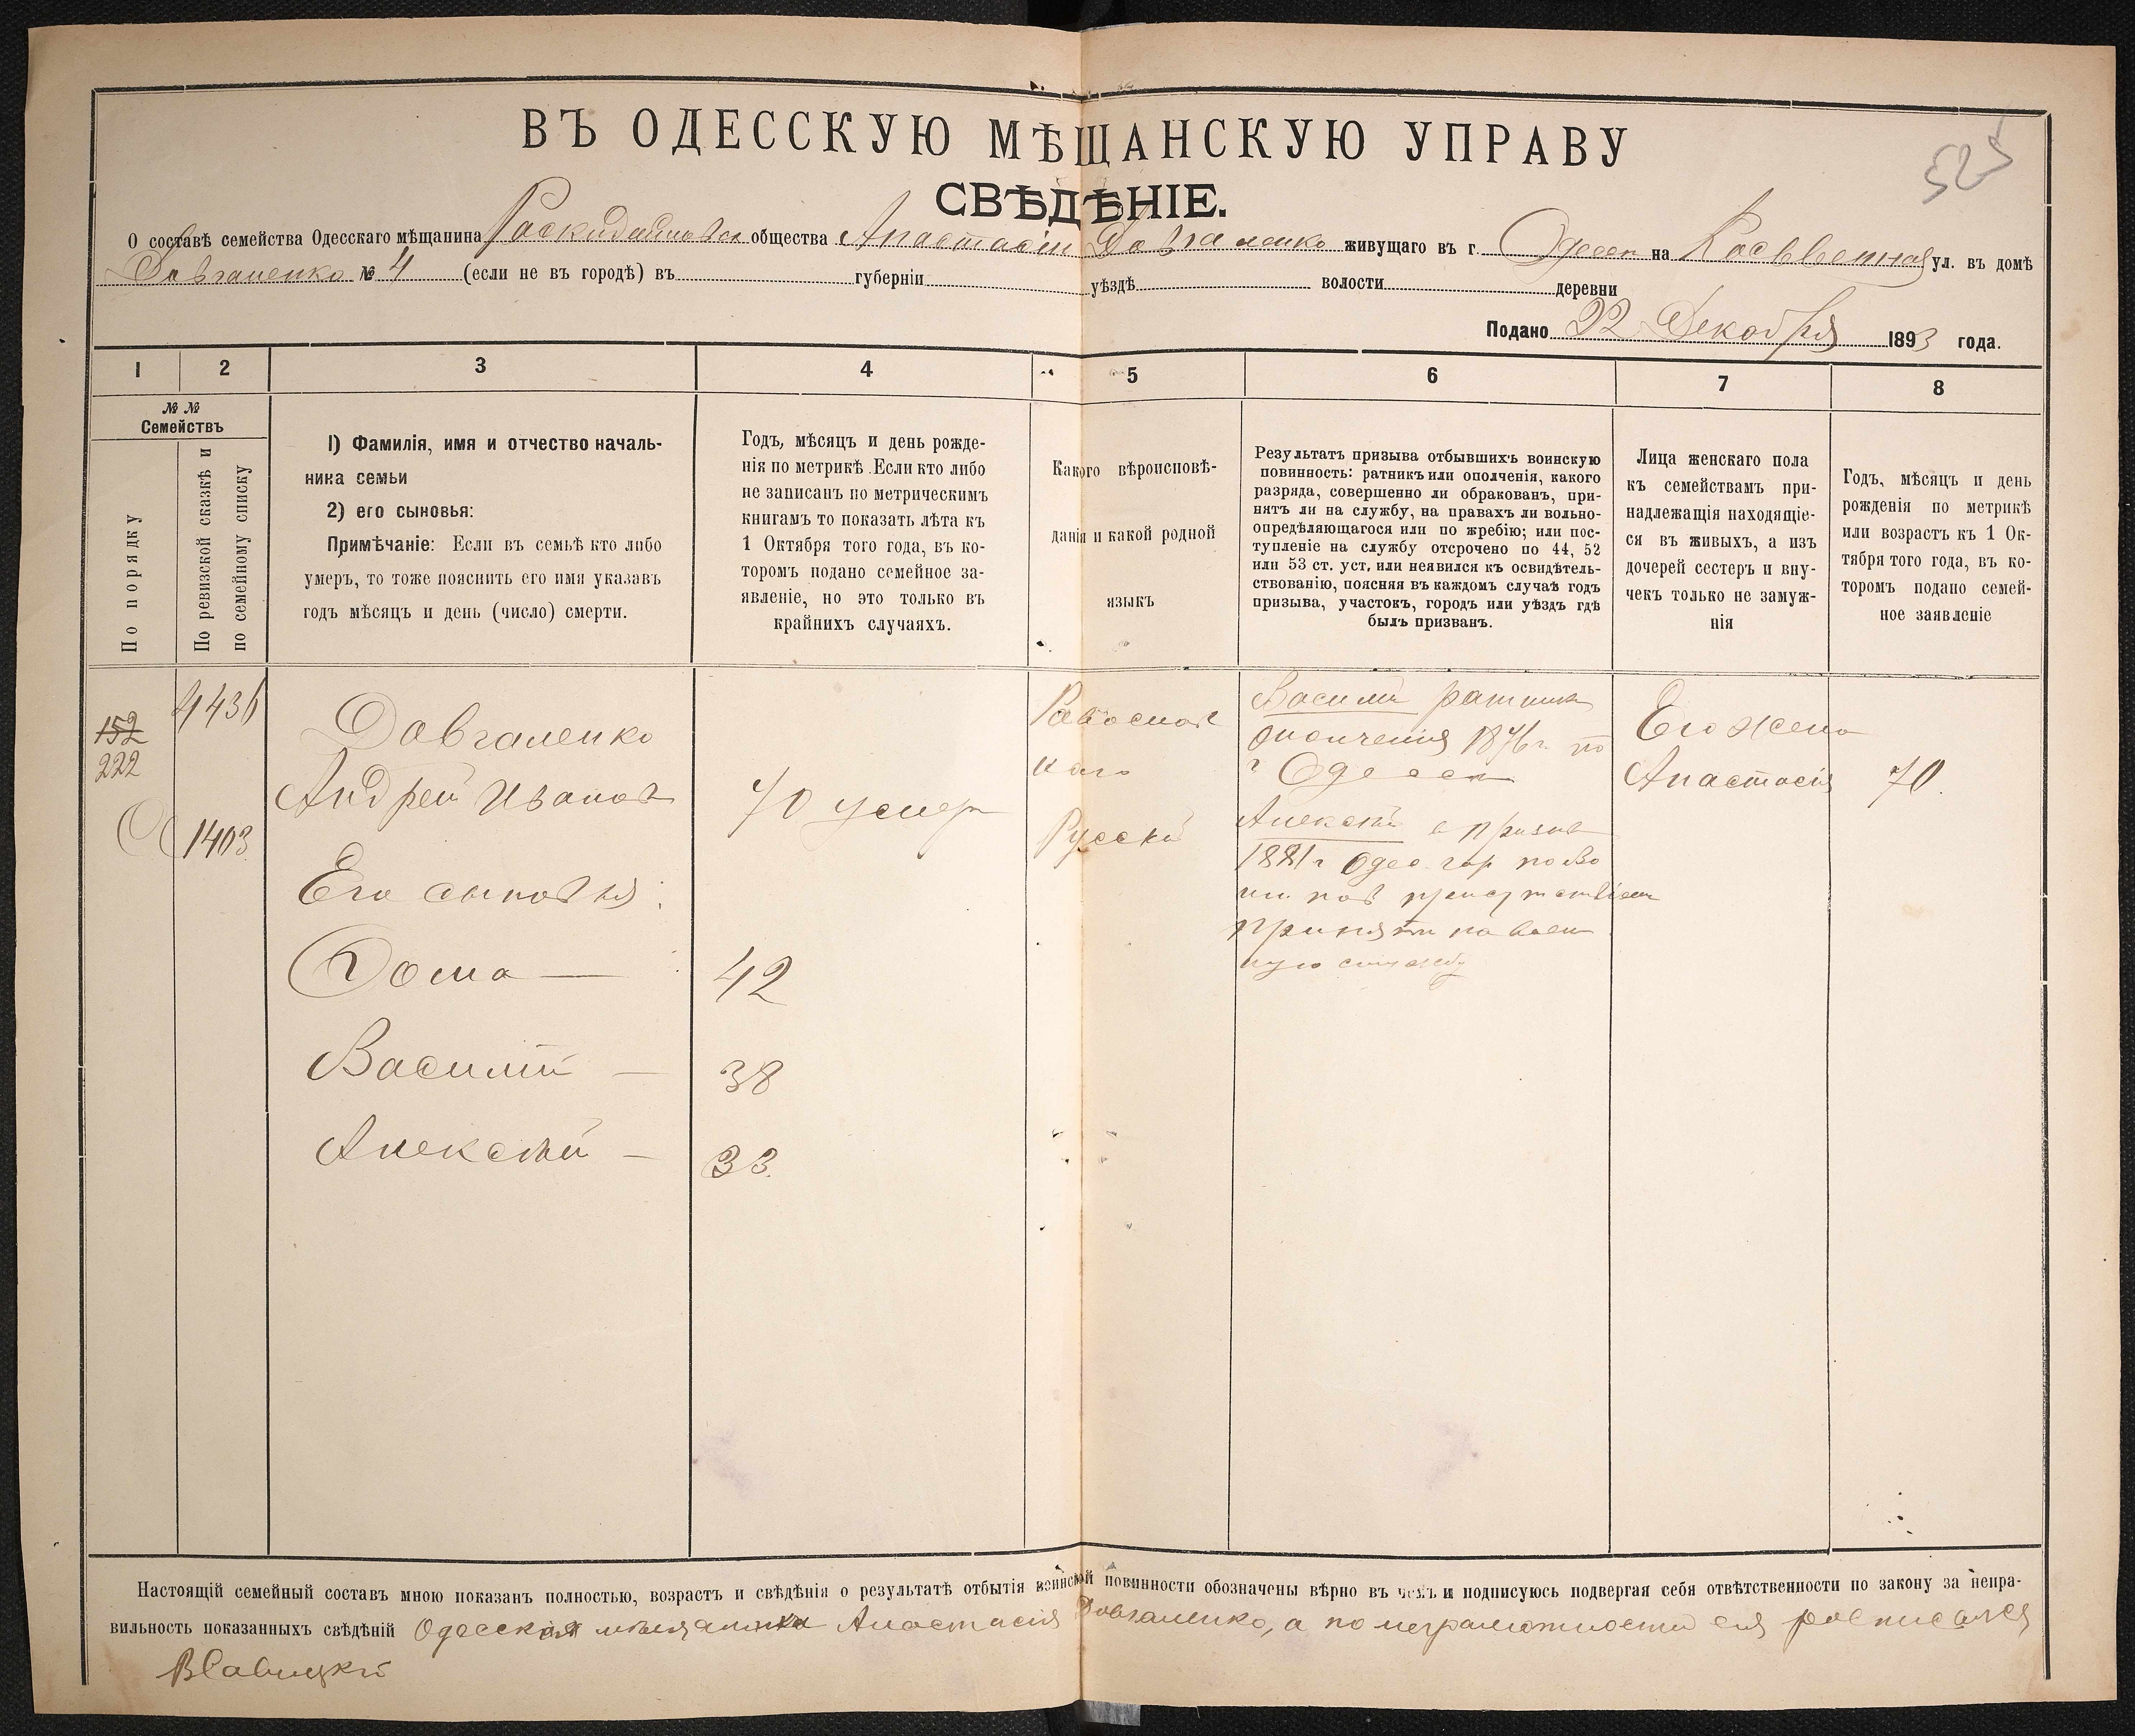 ВЪ ОДЕССКУЮ МѢЩАНСКУЮ УПРАВУ
525
СВѢДѢНІЕ.
О составѣ семейства Одесскаго мѣщанина общества Анастасіи Довгаленко живущаго въ г. Одессѣ на Косвенная ул. въ домѣ
Довгаленко № 4 (если не въ городѣ) въ губерніи уѣздѣ волости деревни
Подано 22 Декабря 1893 года.
1 2 3 4 5 6 7 8
№ №
Семействъ
По порядку
По ревизской сказкѣ и
по семейному списку
1) Фамилія, имя и отчество началь-
ника семьи
2) его сыновья:
Примѣчаніе: Если въ семьѣ кто либо
умеръ, то тоже пояснить его имя указавъ
годъ мѣсяцъ и день (число) смерти.
Годъ, мѣсяцъ и день рожде-
нія по метрикѣ. Если кто либо
не записанъ по метрическимъ
книгамъ то показать лѣта къ
1 Октября того года, въ ко-
торомъ подано семейное за-
явленіе, но это только въ
крайнихъ случаяхъ.
Какого вѣроисповѣ-
данія и какой родной
языкъ
Результатъ призыва отбывшихъ воинскую
повинность: ратникъ или ополченія, какого
разряда, совершенно ли обракованъ, при-
нятъ ли на службу, на правахъ ли вольно-
опредѣляющагося или по жребію; или пос-
тупленіе на службу отсрочено по 44, 52
или 53 ст. уст, или неявился къ освидѣтель-
ствованію, поясняя въ каждомъ случаѣ годъ
призыва, участокъ, городъ или уѣздъ гдѣ
былъ призванъ.
Лица женскаго пола
къ семействамъ при-
надлежащія находящіе-
ся въ живыхъ, а изъ
дочерей сестеръ и вну-
чекъ только не замуж-
нія
Годъ, мѣсяцъ и день
рожденія по метрикѣ
или возрастъ къ 1 Ок-
тября того года, въ ко-
торомъ подано семей-
ное заявленіе
152
222
1403
Довгаленко
Андрей Ивановъ
Его сыновья:
Фома —
Василій —
Алексѣй —
70 умер
42
38
33.
Русскій
Василій ратник
ополченія 1876 г. по
г Одессѣ
Алексѣй в призыв
1881 г Одес. гор по во
ин. пов присутствіем
принят на воен
ную службу
Его жена
Анастасія
70.
Настоящій семейный составъ мною показанъ полностью, возрастъ и свѣдѣнія о результатѣ отбытія воинской повинности обозначены вѣрно въ чемъ и подписуюсь подвергая себя отвѣтственности по закону за непра-
вильность показанныхъ свѣдѣній Одесская мѣщанка Анастасія Довгаленко, а по неграмотности ея росписался
В Савицкій